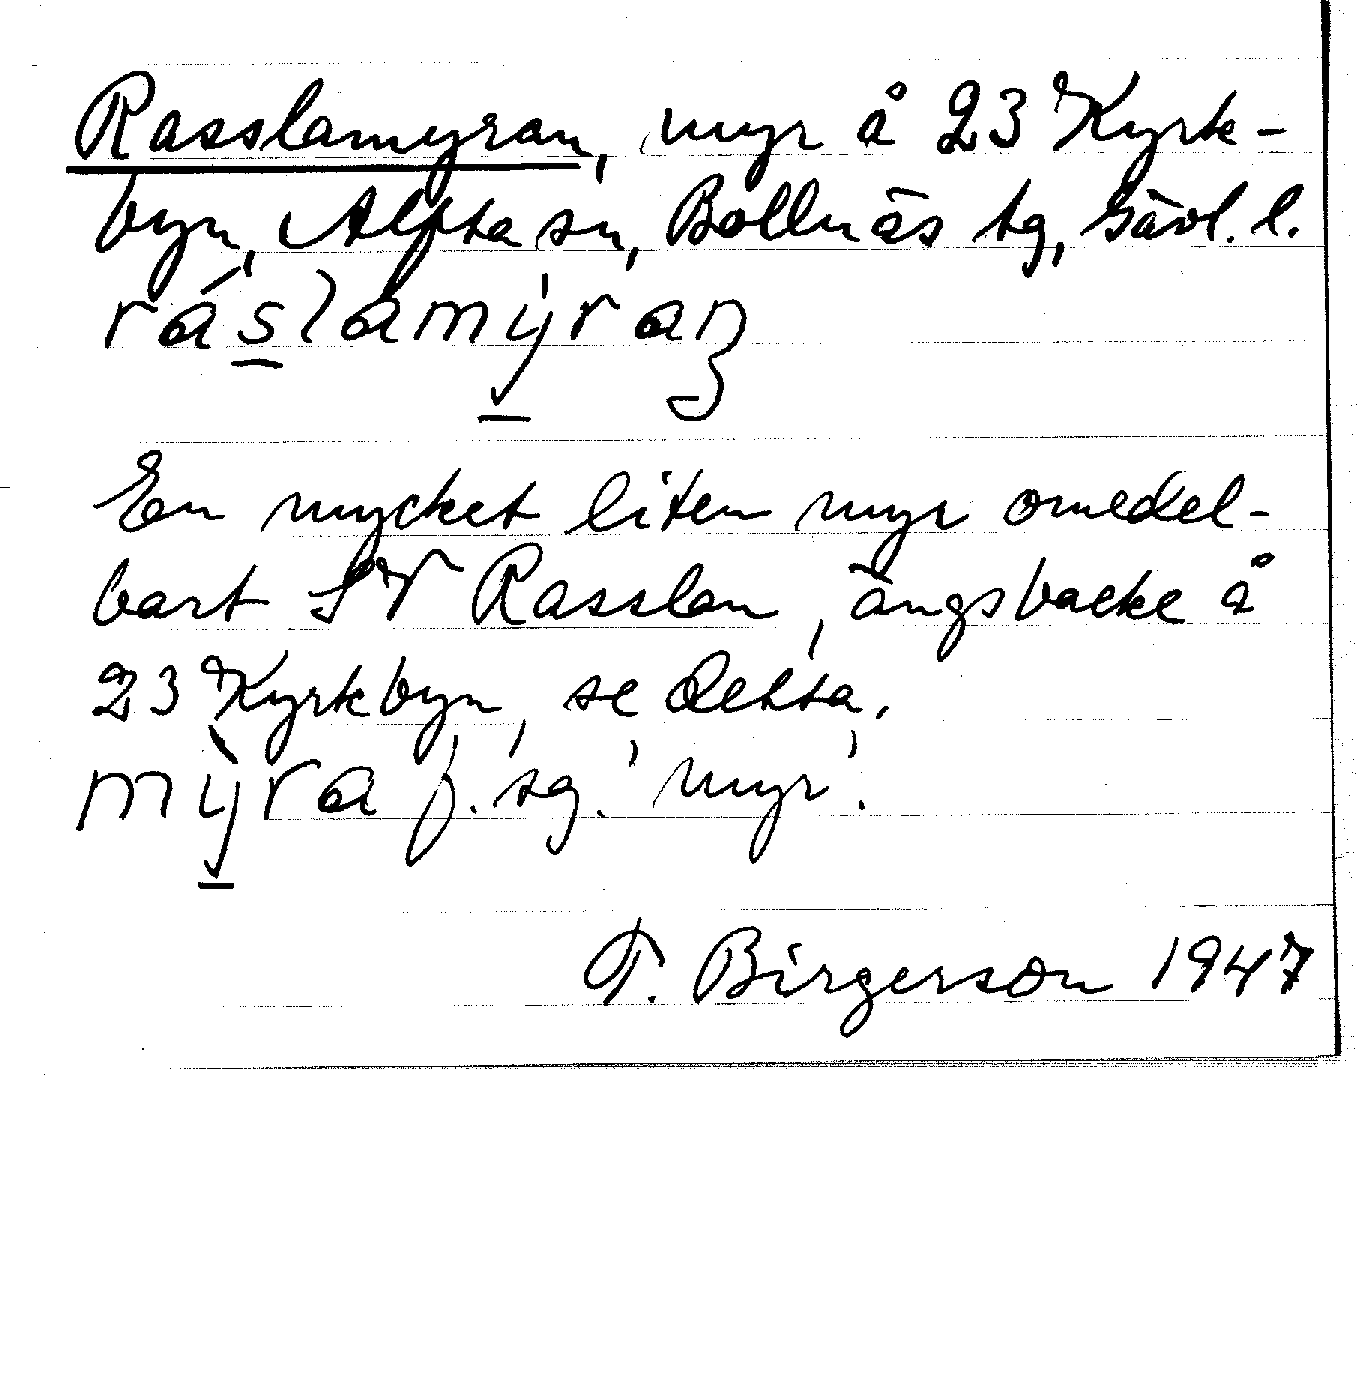 Rasslamyran, myr å 23 Kyrk-
byn, Alfta sn, Bollnäs tg, Gävl. l.
ráslamýran
En mycket liten myr omedel-
bart SV Rasslan, ängsbacke å
23 Kyrkbyn, se detta.
mỳra f. sg. 'myr'.
T. Birgerson 1947